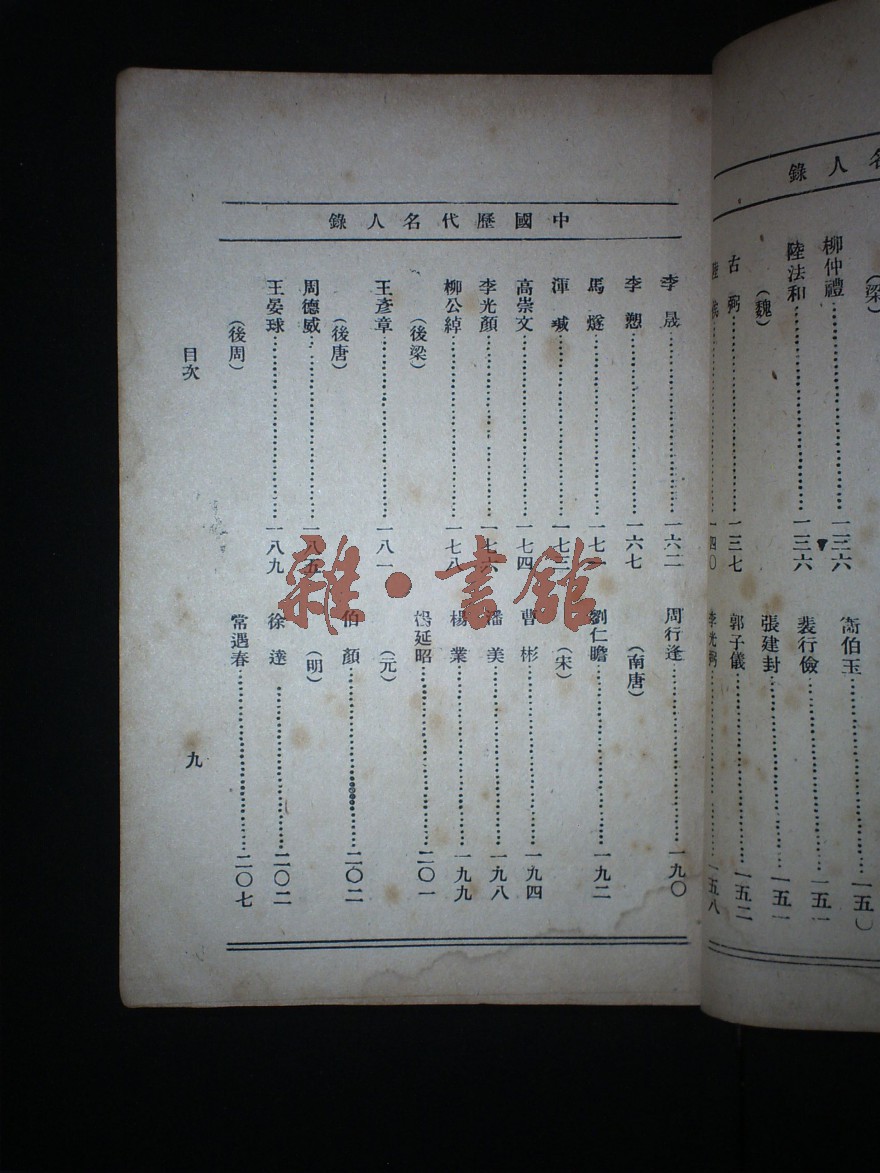 名人錄
（梁）
柳仲禮……一三六
陸法和……一三六
（魏）
古弼……一三七
一四〇
衞伯玉……一五
裴行儉……一五一
張建封……一五一
郭子儀……一五二
李光弼……一五八
中國歷代名人錄
李晟……一六二
李愬……一六七
馬燧……一七一
渾瑊……一七三
高崇文……一七四
李光顏……一七六
柳公綽……一七八
（後梁）
王彥章……一八一
（後唐）
周德威……一八五
王晏球……一八九
（後周）
周行逢……一九〇
（南唐）
劉仁瞻……一九二
（宋）
曹彬……一九四
潘美……一九八
楊業……一九九
楊延昭……二〇一
（元）
伯顏……二〇二
（明）
徐達……二〇二
常遇春……二〇七
目次
九
雜·書館